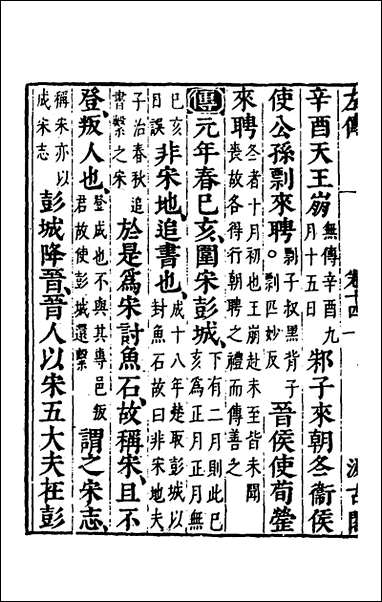 左傳 一 卷十四 汲古閣
辛酉天王崩無傳辛酉九月十五日邾子來朝冬衞侯
使公孫剽來聘。剽子叔黑背子剽匹妙反晉侯使荀罃
來聘冬者十月初也王崩赴未至皆未聞喪故各得行朝聘之禮而傳善之
傳元年春巳亥、圍宋彭城、下有二月則此巳亥爲正月正月無
巳亥日誤非宋地、追書也、成十八年楚取彭城以封魚石故曰非宋地夫
子治春秋追書繫之宋於是爲宋討魚石、故稱宋、且不
登、叛人也、登成也不與其專邑叛君故使彭城還繫謂之宋志、
稱宋亦以成宋志彭城降晉、晉人以宋五大夫在彭